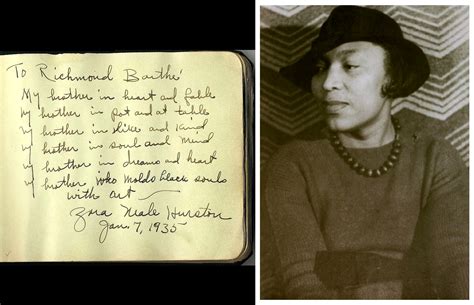 To Richmond Barthé
My brother in heart and fable
My brother in pot and at table
My brother in likes and kind
My brother in soul and mind
My brother in dreams and heart
My brother who molds black souls
with art
Zora Neale Hurston
Jan. 7, 1935